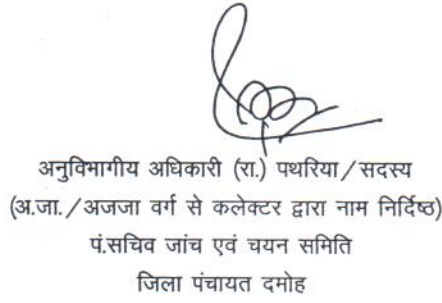 अनुविभागीय अधिकारी (रा.) पथरिया/सदस्य
(अ.जा./अजजा वर्ग से कलेक्टर द्वारा नाम निर्दिष्ठ)
पं.सचिव जांच एवं चयन समिति
जिला पंचायत दमोह